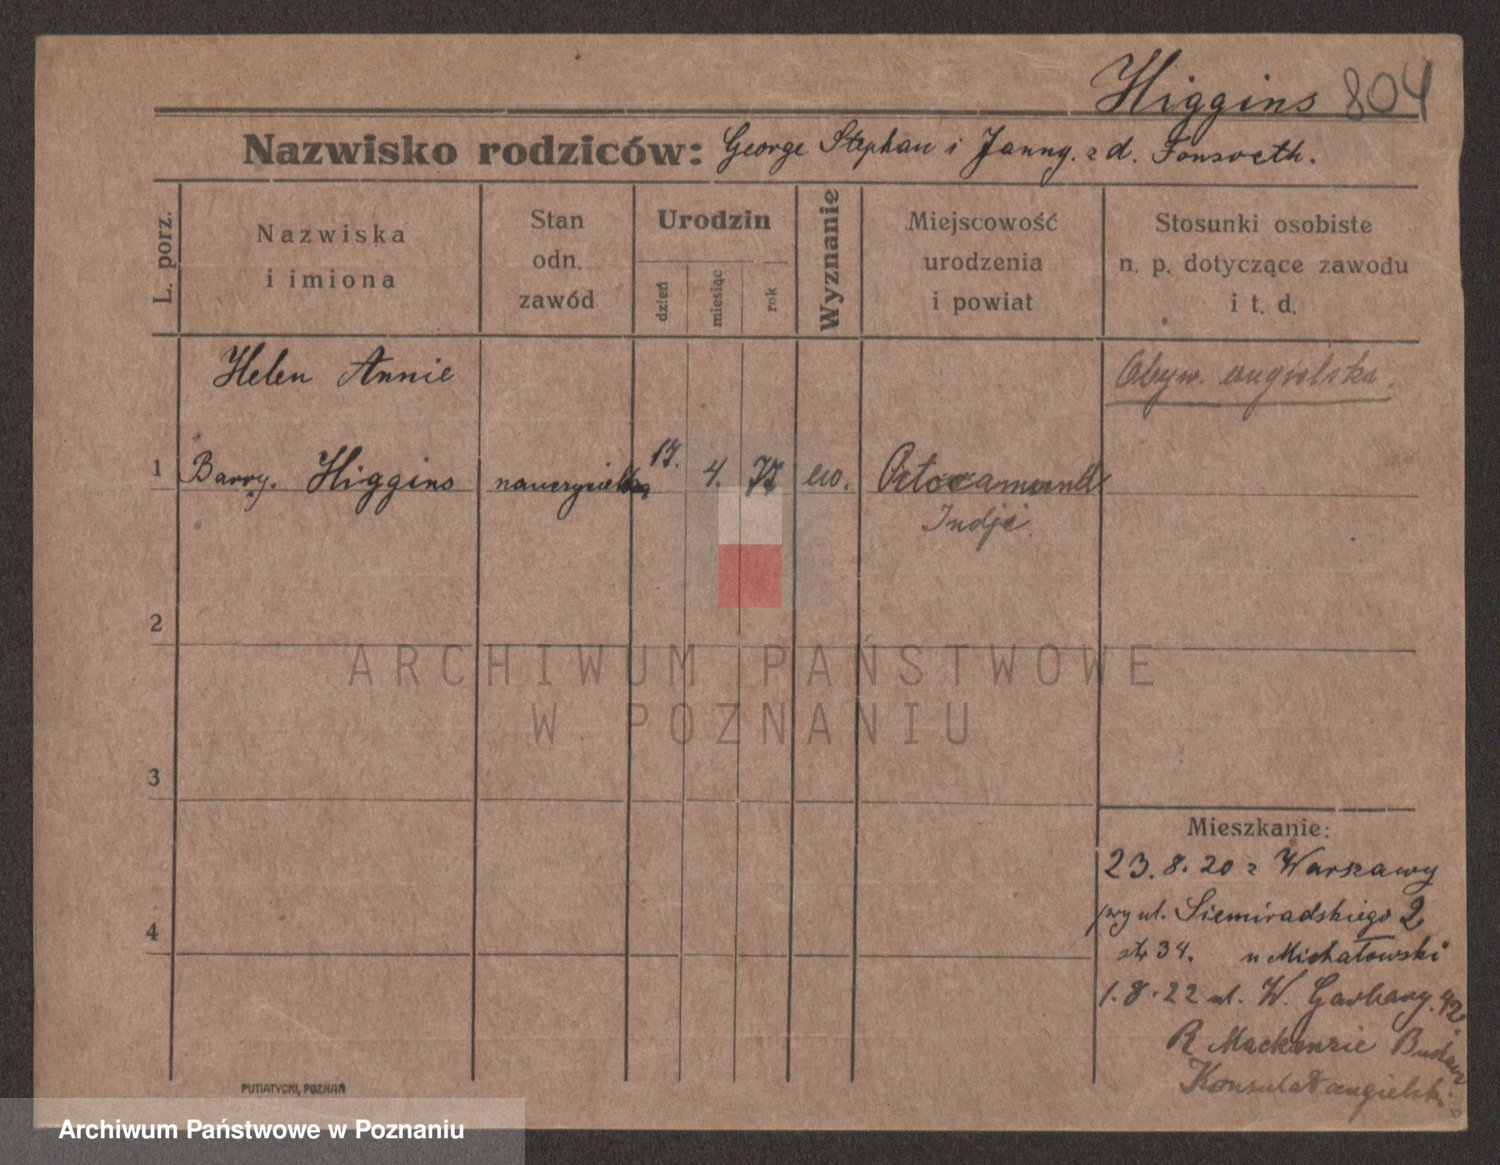 Higgins 804
Nazwisko rodziców: George Stephan i Janny. z d.
L. porz.
Nazwiska
i imiona
Stan
odn.
zawód
Urodzin
dzień
miesiąc
rok
Wyznanie
Miejscowość
urodzenia
i powiat
Stosunki osobiste
n. p. dotyczące zawodu
i t. d.
Helen Annie
Obyw. angielska.
1 Barry. Higgins nauczycielka 17. 4. 77 ew.
Indje.
2
ARCHIWUM PAŃSTWOWE
W POZNANIU
3
Mieszkanie:
23.8.20 z Warszawy
przy ul. Siemiradskiego 2
4
str 34. u Michałowski
1.8.22 ul. W. Garbary. 42.
R Mackenzie
Konsulat angielski
PUTIATYCKI, POZNAŃ
Archiwum Państwowe w Poznaniu